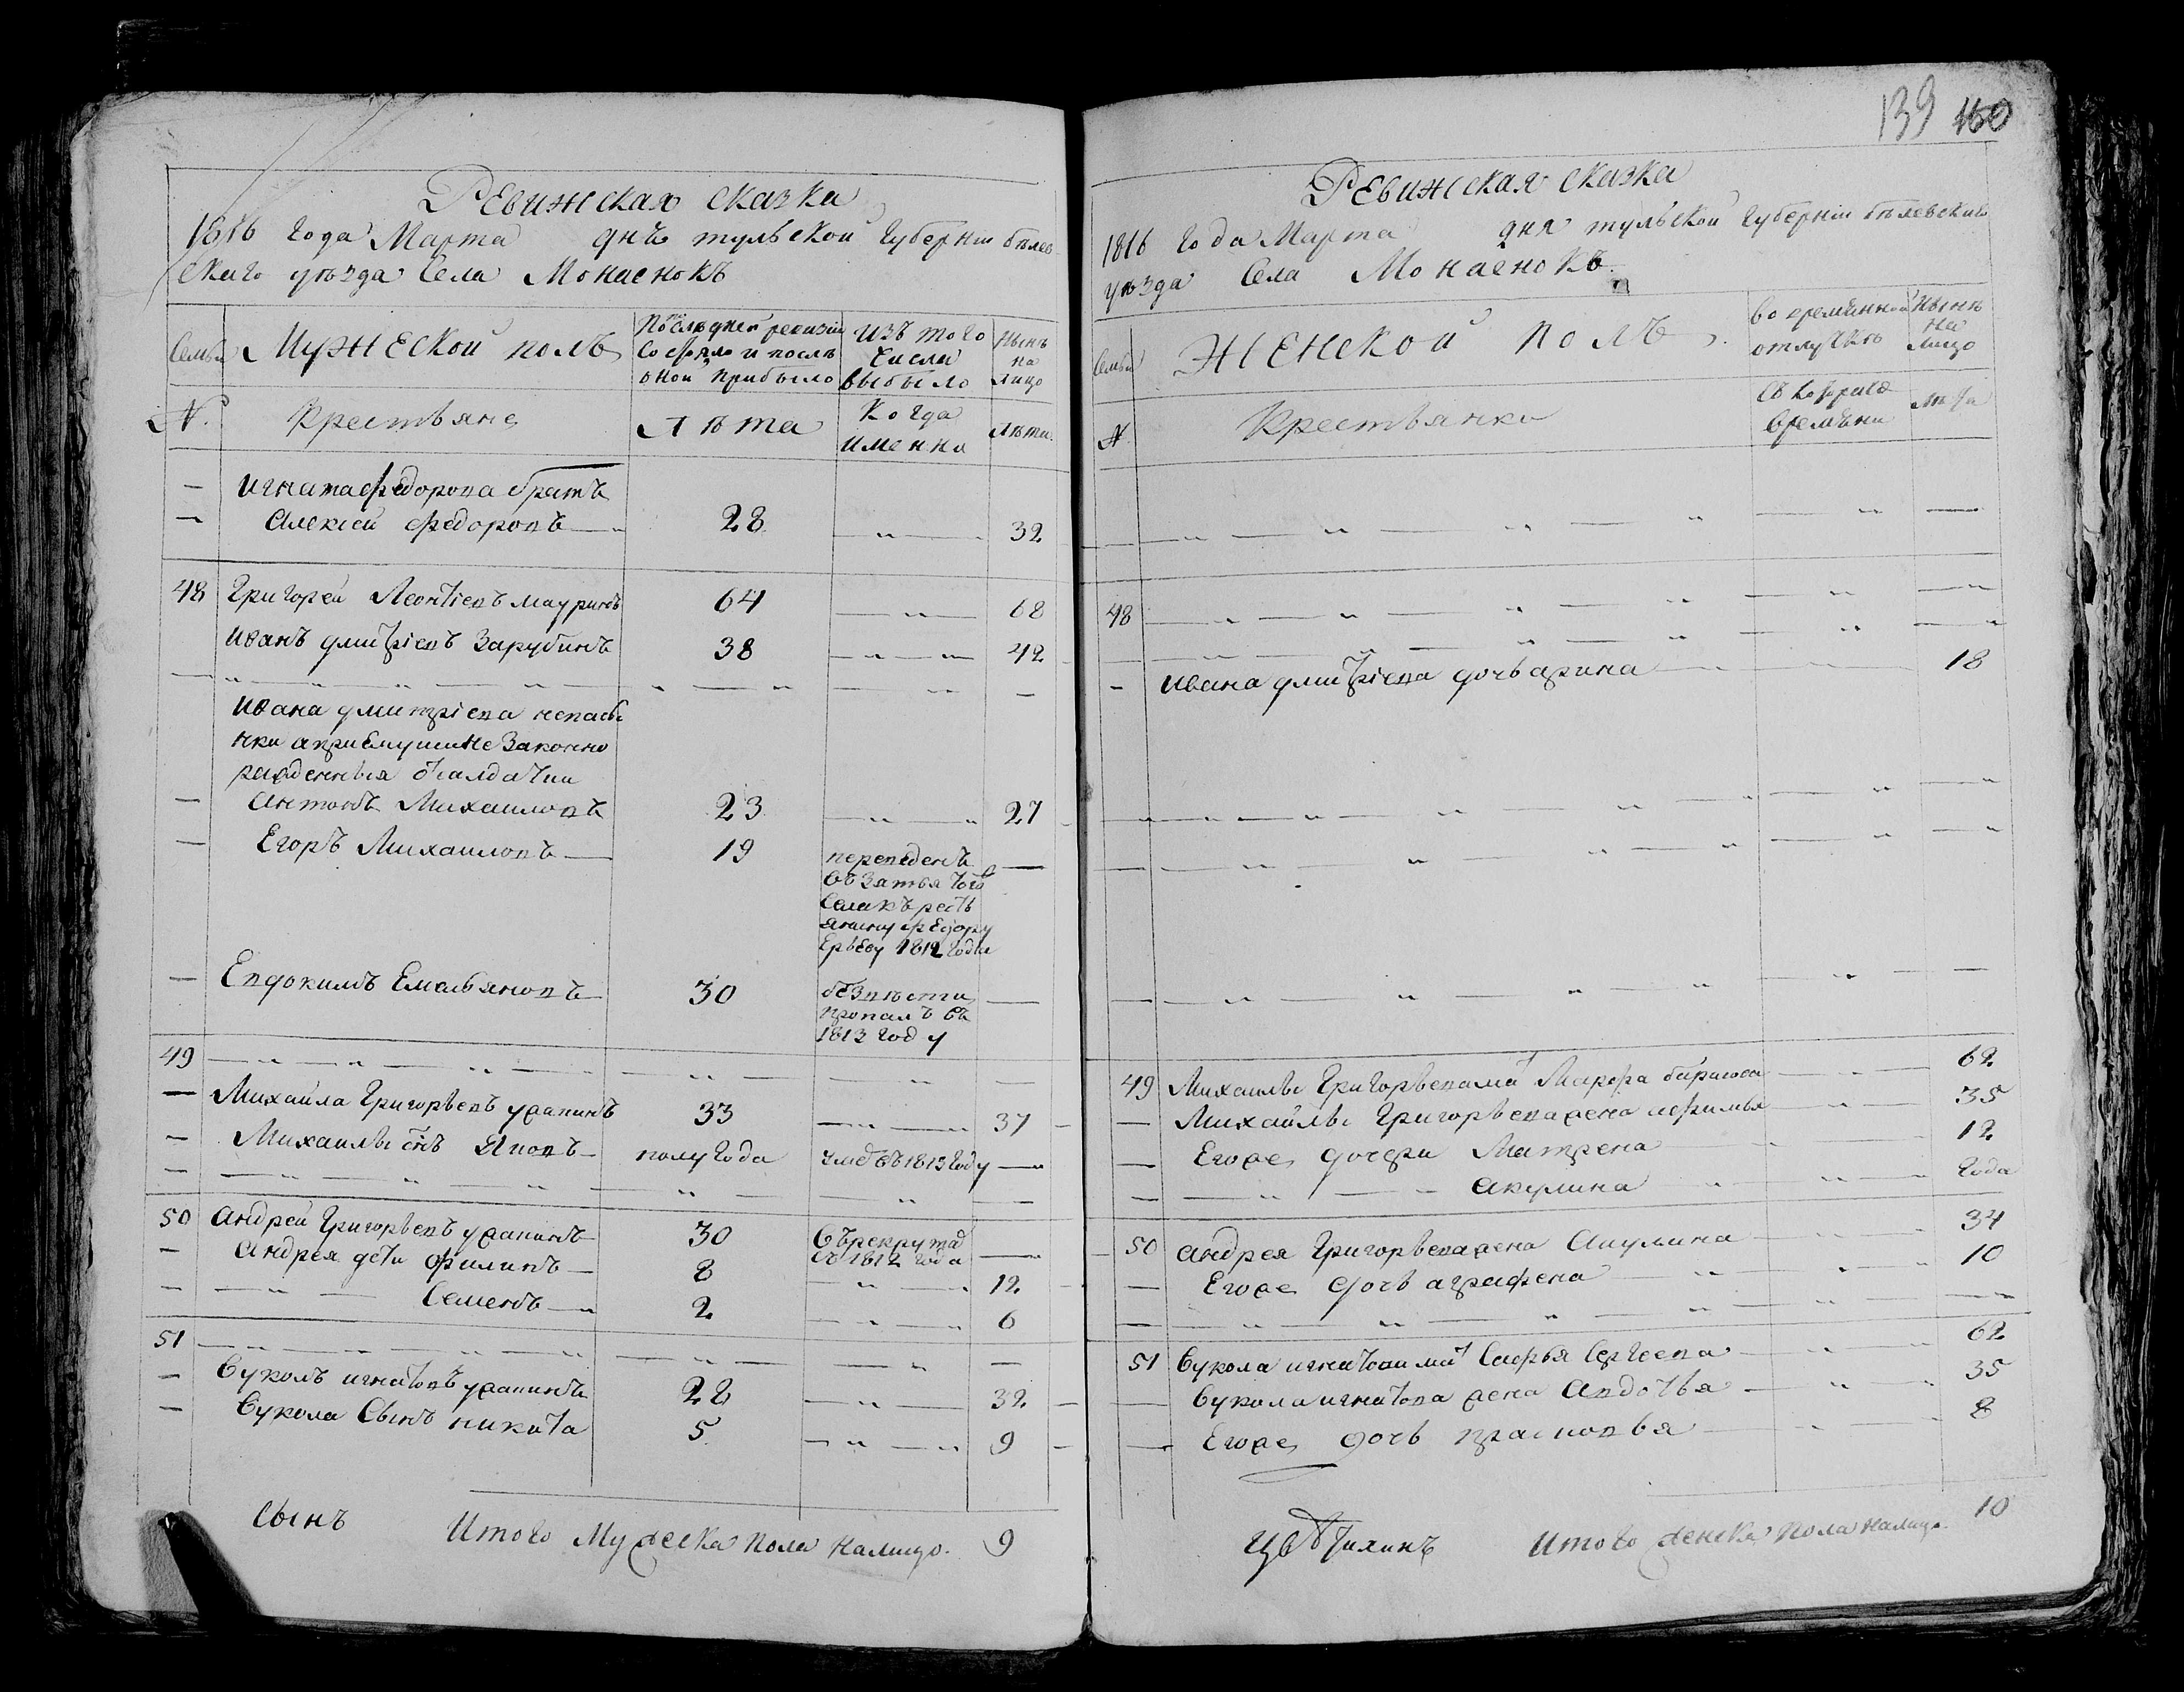 139 160
Ревижская сказка
1816 года Марта днѣ тульской Губерніи бѣлев
скаго уѣзда Села Монаенокъ
Семьи
Мужеской полъ
Последней ревизіи
Состояло и послѣ
оной прибыло
Изъ того
числа
выбыло
Нынѣ
на
лицо
№.
Крестьяне
Лѣта
Когда
именно
Лѣта
Игната федорова братъ
Алексей федоровъ 28 32
48 Григорей Леонтіевъ мауринъ 64 68
Иванъ дмитріевъ Зарубинъ 38 42
Ивана дмитріева
незаконно
рожденныя
Антонъ Михаиловъ 23 27
Егоръ Михаиловъ 19
переведенъ
въ зятья того
села къ рестъ
янину федору
1812 года
Евдокимъ Емельяновъ 30
безвѣсти
пропалъ въ
1813 году
49
Михайла Григорьевъ 33 37
Михаилы снъ Яковъ полугода умеръ въ 1813 году
50 Андрей Григорьевъ 30
въ рекрута
съ 1812 года
Андрея дети Филипъ 8 12
Семенъ 2 6
51
Вуколъ игнатовъ 28 32
Вукола Сынъ никита 5 9
Сынъ
Итого Мужеска пола налицо. 9
Ревижская сказка
1816 года Марта дня тульской Губерніи бѣлевскаго
уѣзда Села Монаенокъ.
Семьи
Женской полъ.
во временной
отлучке
Нынѣ
на
лицо
№
Крестьянки
Съ котораго
времени
лета
48
Ивана дмитріева дочь арина 18
49 Михаилы Григорьева мать Марфа 62
Михайлы Григорьева жена 35
Егоже дочери Матрена 12
Акулина года
50 Андрея Григорьева жена Акулина 34
Егоже дочь аграфена 10
51 Вукола игнатова мать Софья Сергеева 62
Вукола игнатова жена Авдотья 35
Егоже дочь прасковья 8
Итого женска пола налицо. 10